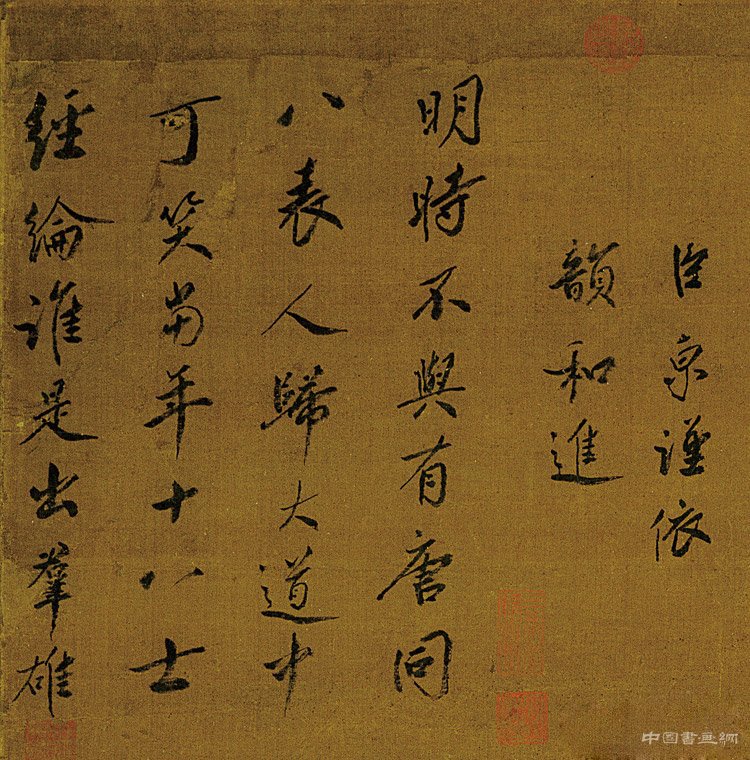 臣京谨依
韻和進
明時不與有唐同
八表人歸大道中
可笑當年十八士
經綸誰是出羣雄
中国書画網